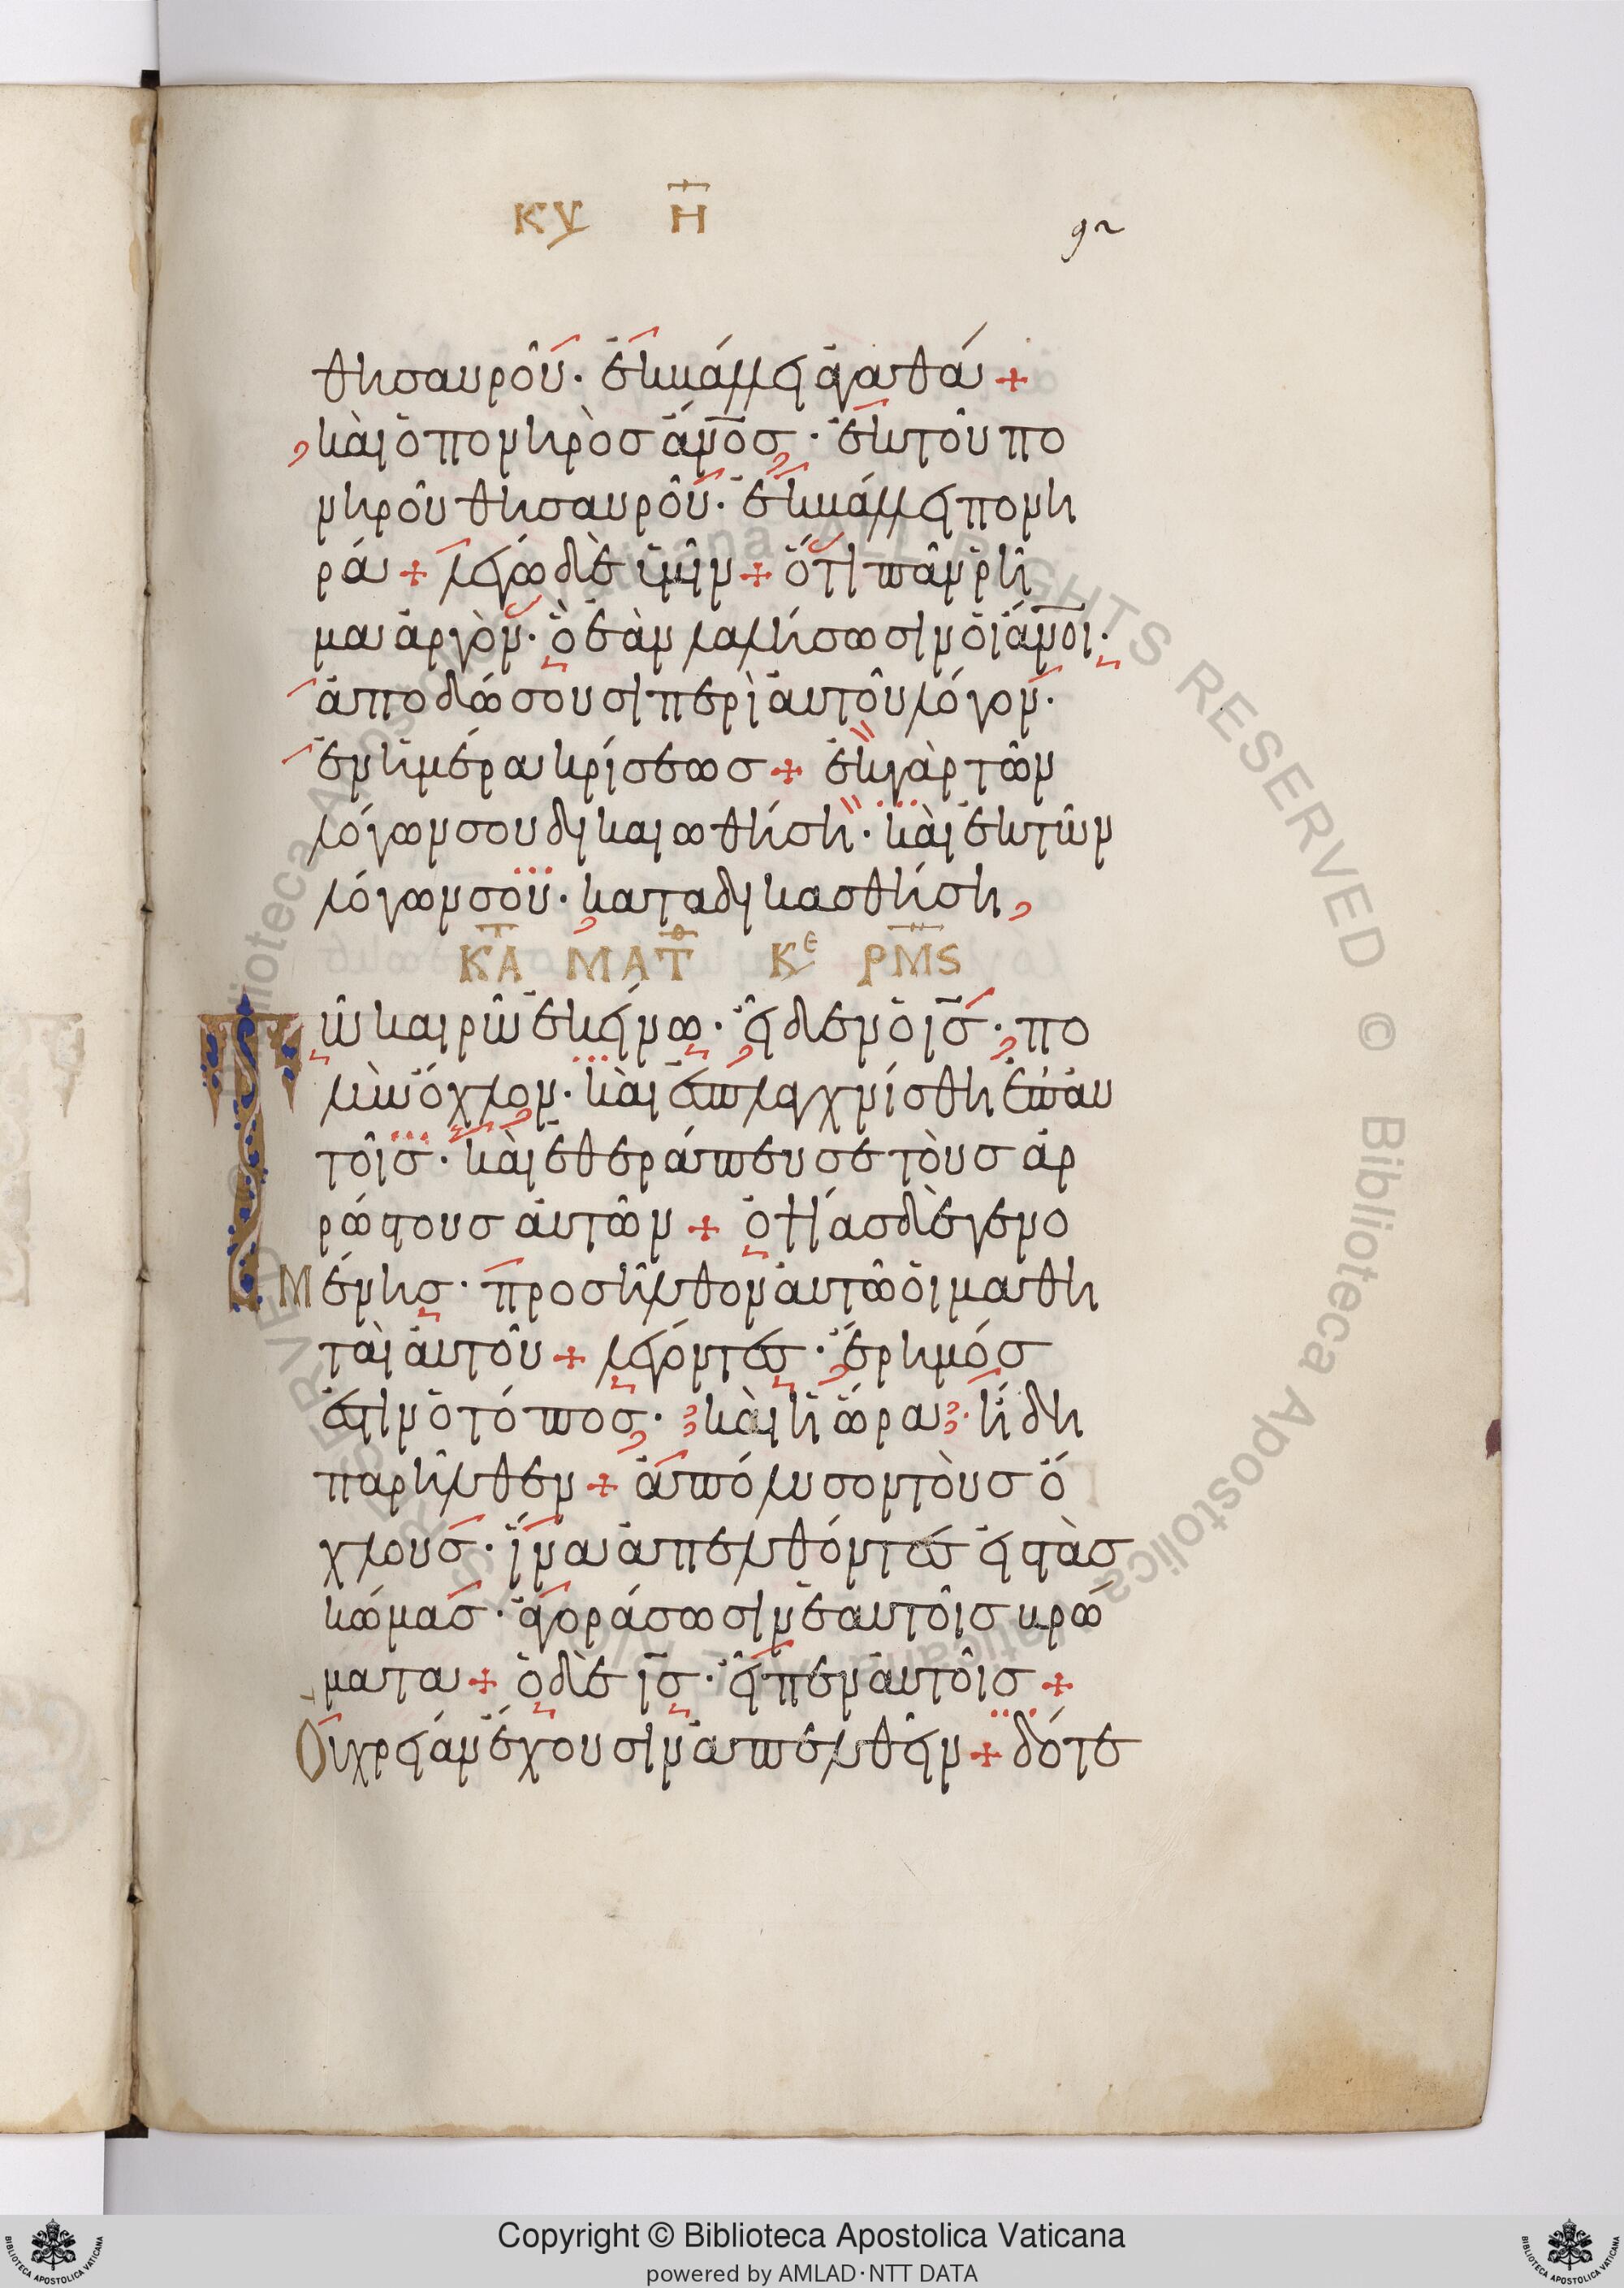 ΚΥ Η
92
θησαυροῦ· ἐκβάλλει ἀγαθά +
καὶ ὁ πονηρὸς ἄνος· ἐκ τοῦ πο
νηροῦ θησαυροῦ· ἐκβάλλει πονη
ρά + λέγω δὲ ὑμῖν + ὅτι πᾶν ῥῆ
μα ἀργὸν· ὃ ἐὰν λαλήσωσιν οἱ ἄνοι·
ἀποδώσουσι περὶ αὐτοῦ λόγον·
ἐν ἡμέρα κρίσεως + ἐκ γὰρ τῶν
λόγων σου δικαιωθήση· καὶ ἐκ τῶν
λόγων σου· καταδικασθήση,
ΚΑ ΜΑΤΘ Κε ΡΜϛ
Τῶ καιρῶ ἐκείνω· εἶδεν ὁ ις· πο
λὺν ὄχλον· καὶ ἐσπλαγχνίσθη ἐπ' αυ
τοῖς· καὶ ἐθεράπευσε τοὺς ἀρ
ρώστους αὐτῶν + ὀψίας δὲ γενο
Μ ένης· προσῆλθον αὐτῶ οἱ μαθη
ταὶ αὐτοῦ + λέγοντες· ἔρημός
ἐστιν ὁ τόπος· καὶ ἡ ὥρα· ἤδη
παρῆλθεν + ἀπόλυσον τοὺς ὄ
χλους· ἵνα ἀπελθόντες εἰς τὰς
κώμας· ἀγοράσωσιν ἑαυτοῖς βρώ
ματα + ὁ δὲ ις· εἶπεν αὐτοῖς +
Οὐ χρείαν ἔχουσιν ἀπελθεῖν + δότε
Copyright © Biblioteca Apostolica Vaticana
powered by AMLAD·NTT DATA